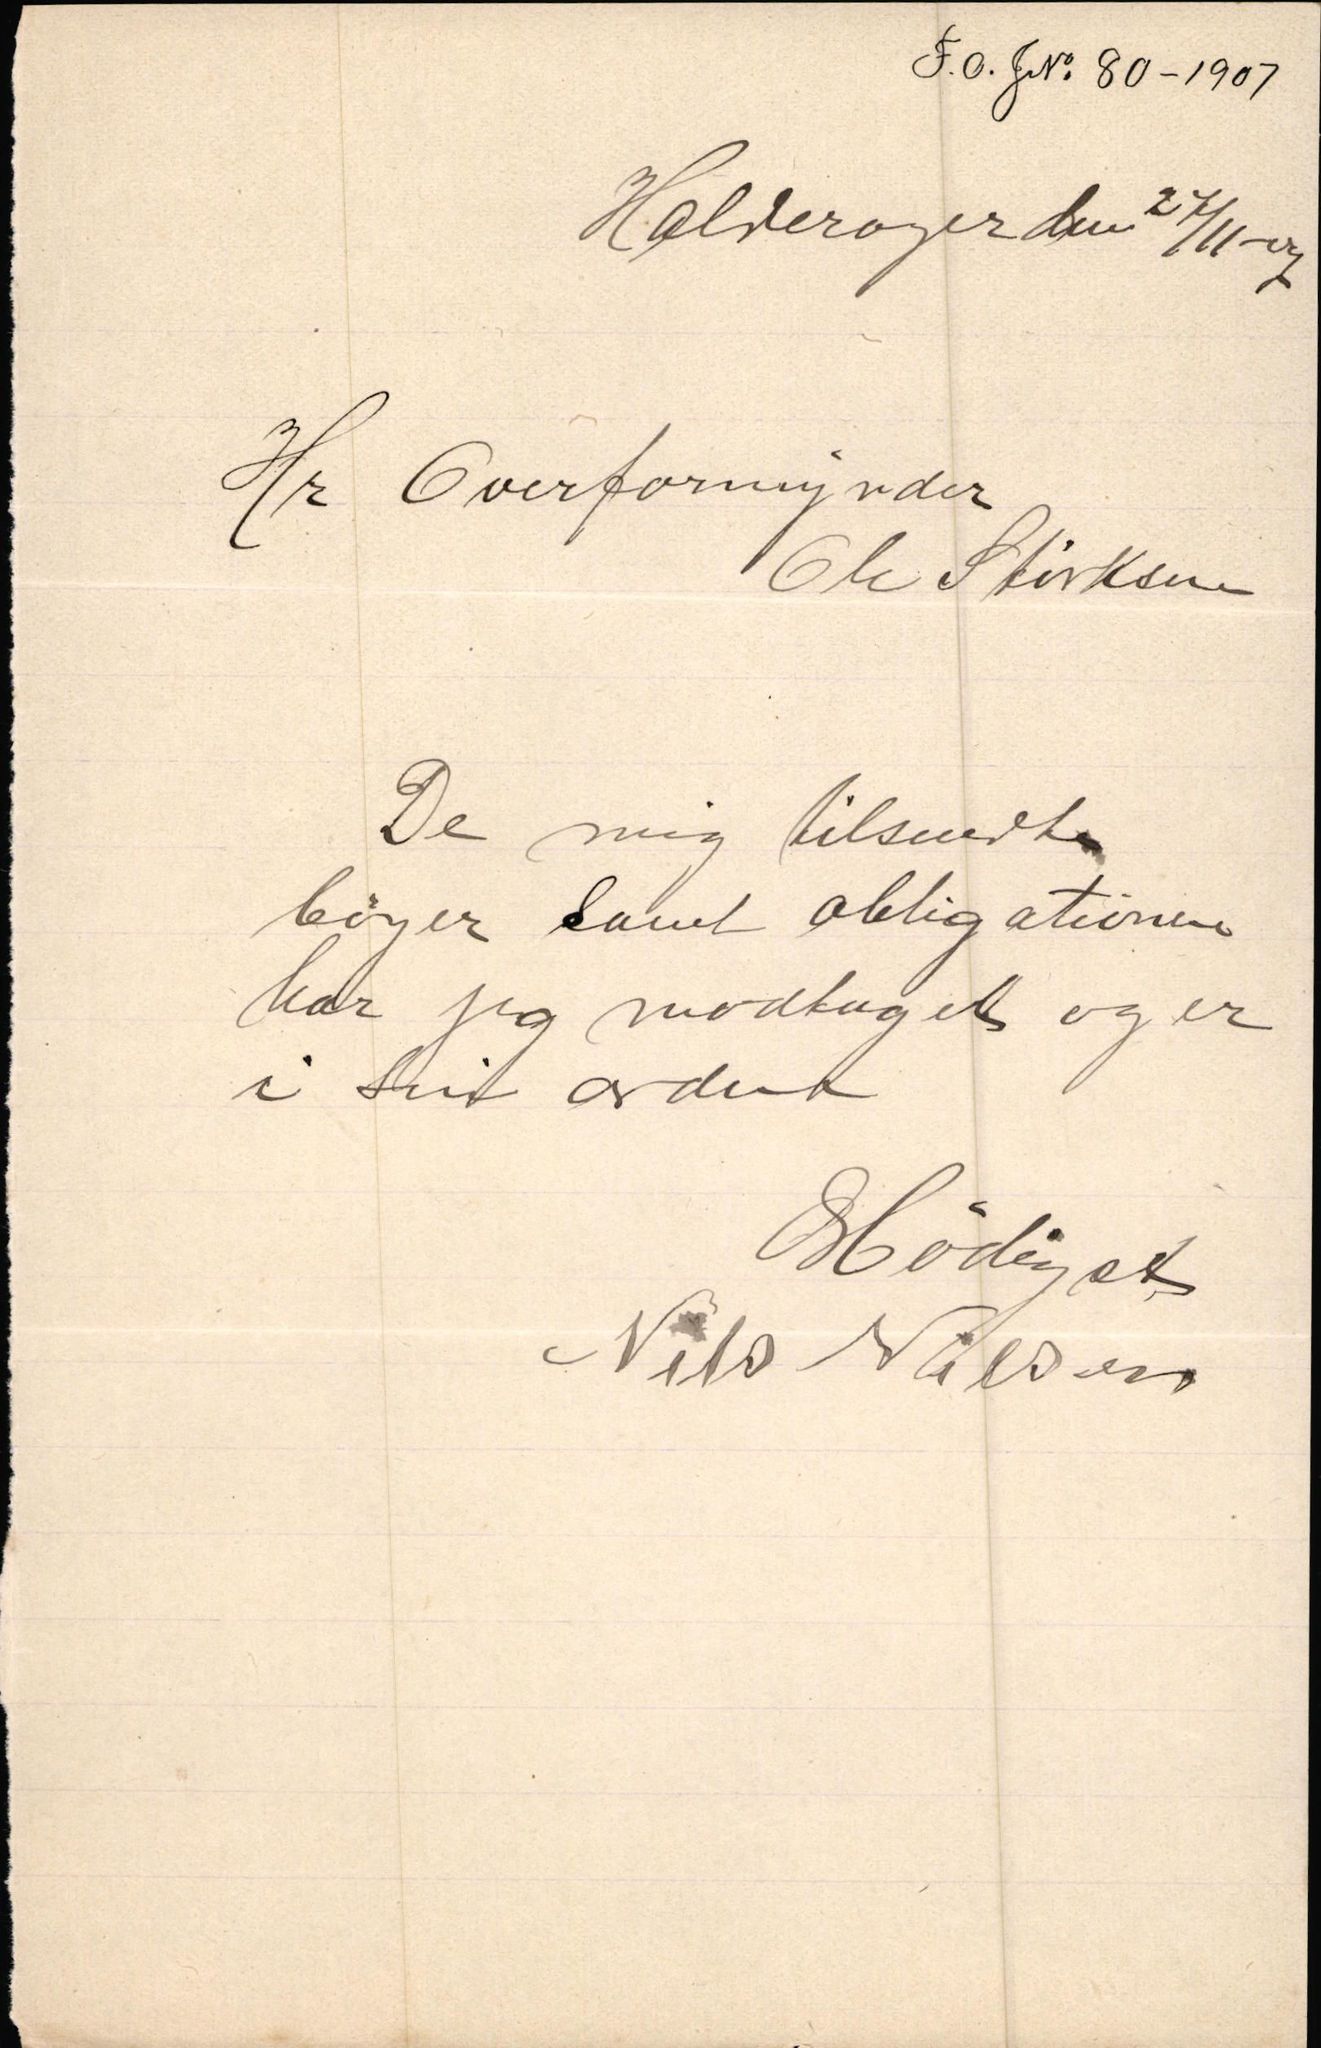 F.O. JNo. 80-1907
Holderager den 27/11-07
Hr Overformynder
Ole Störksen
De mig tilsendte
böger samt obligationen
har jeg modtaget og er
i sin orden
Ærbödigst
Nils Nilsen